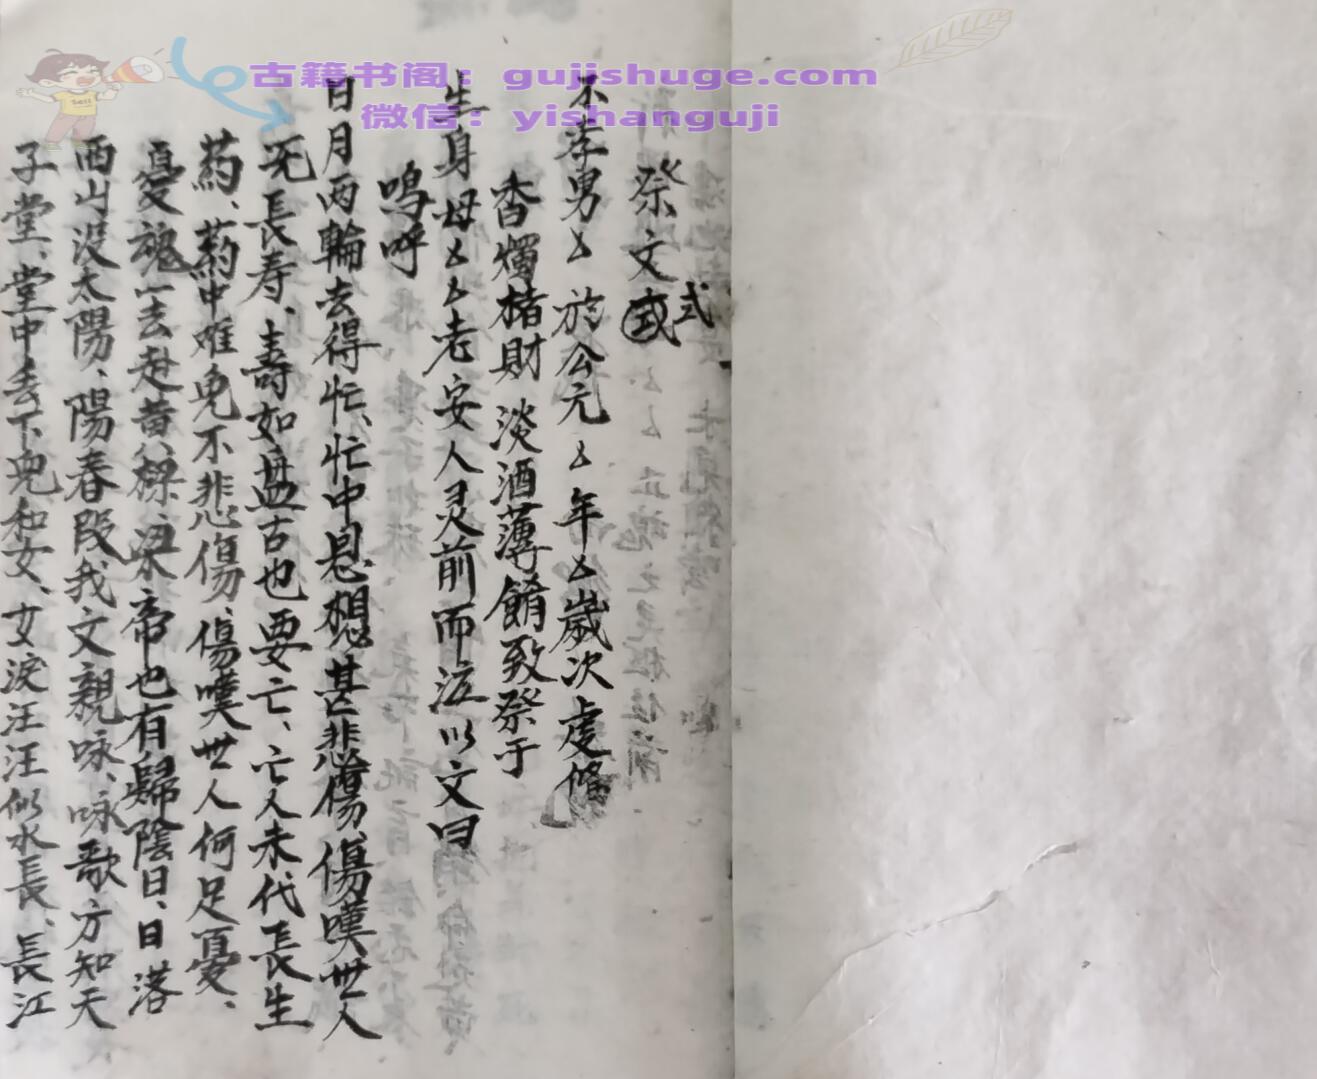 古籍书阁：gujishuge.com
微信：yishanguji
Sell
祭文式
式
不孝男厶於公元厶年厶歲次虔俻
香燭楮財淡酒薄餚致祭于
生身母厶厶老安人灵前而泣以文曰
嗚呼
日月两輪去得忙、忙中思想甚悲傷、傷嘆世人
无長寿、壽如盘古也要亡、亡人未代長生
药、葯中难免不悲傷、傷嘆世人何足憂、
憂魂一去赴黄樑、梁帝也有歸陰日、日落
西山没太陽、陽春段我文親咏、咏歌方知天
子堂、堂中丢下兒和女、女淚汪汪似水長、長江